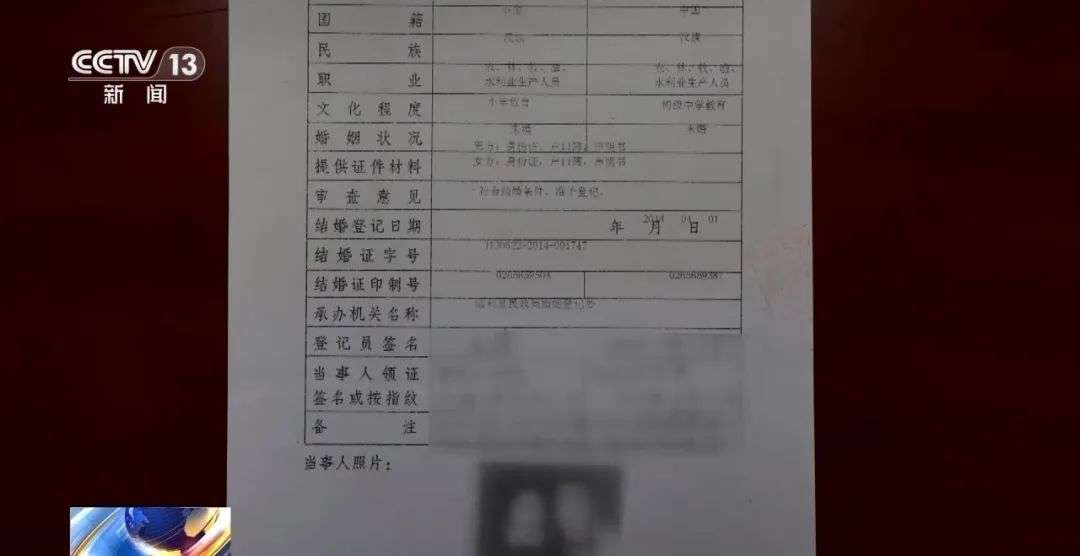 CCTV 13
新闻
国籍 中国 中国
民族 汉族 汉族
职业 农、林、牧、渔、 农、林、牧、渔、
水利业生产人员 水利业生产人员
文化程度 小学教育 初级中学教育
婚姻状况 未婚 未婚
男方：身份证，户口簿，声明书
提供证件材料 女方：身份证，户口簿，声明书
审查意见 符合结婚条件，准予登记。
结婚登记日期 2014 年 04 月 01 日
结婚证字号
结婚证印制号
承办机关名称
登记员签名
当事人领证
签名或按指纹
备注
当事人照片：